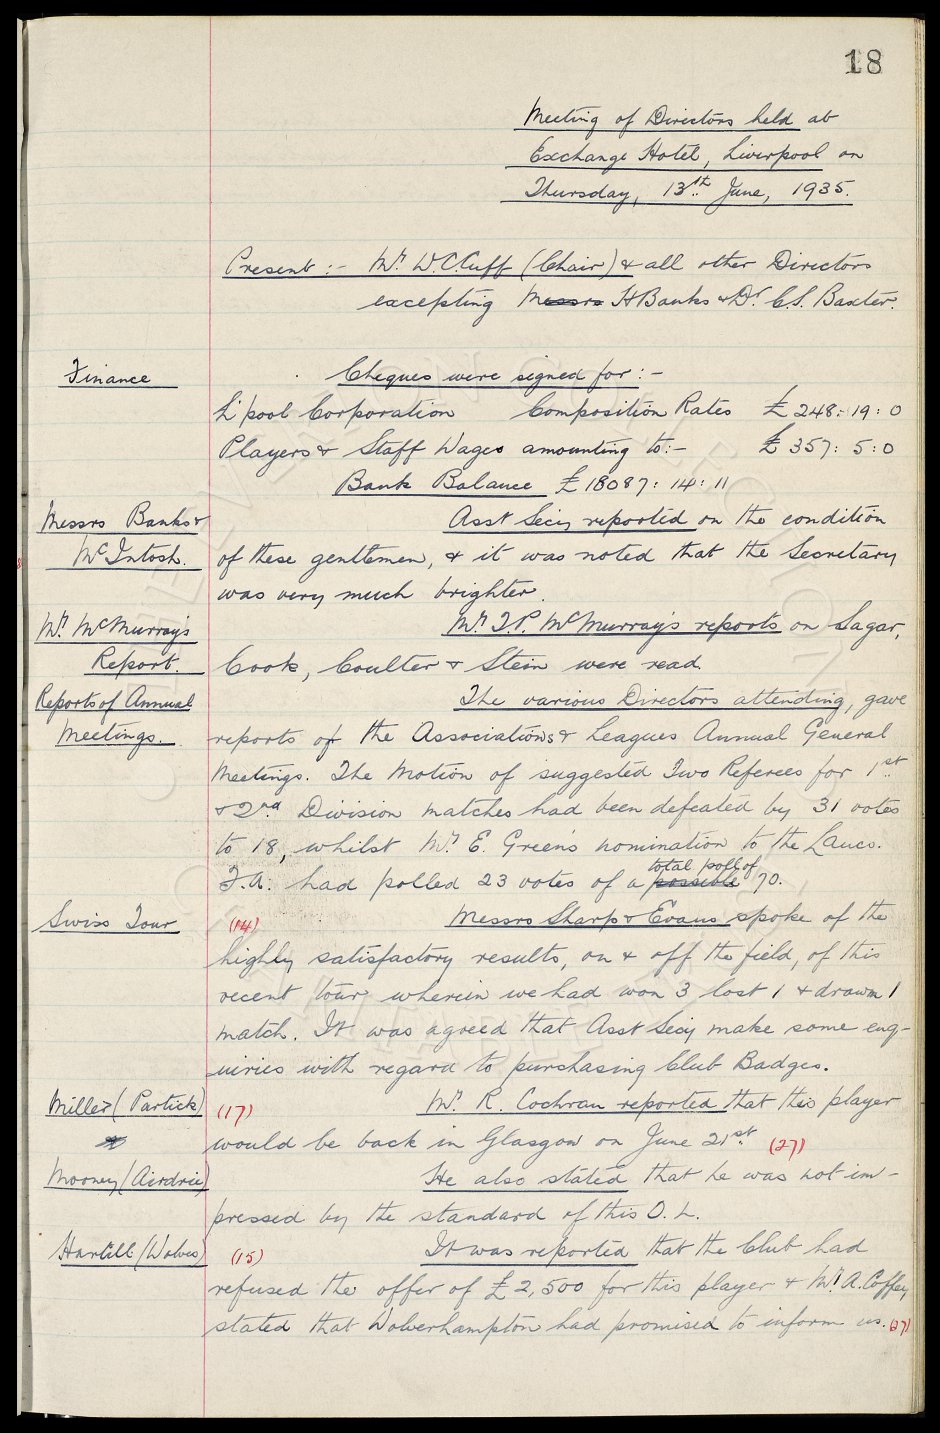 18
Meeting of Directors held at
Exchange Hotel, Liverpool on
Thursday, 13th June, 1935.
Present :- Mr W.C. Cuff (Chair) & all other Directors
excepting Messrs H Banks & Dr C.S. Baxter.
Finance
Cheques were signed for :-
L'pool Corporation Composition Rates £ 248 : 19 : 0
Players & Staff Wages amounting to :- £ 357 : 5 : 0
Bank Balance £ 18087 : 14 : 11
Messrs Banks &
McIntosh.
Asst Secy reported on the condition
of these gentlemen, & it was noted that the Secretary
was very much brighter.
Mr McMurray's
Report.
Mr T.P. McMurray's reports on Sagar,
Cook, Coulter & Stein were read.
Reports of Annual
Meetings.
The various Directors attending, gave
reports of the Associations & Leagues Annual General
Meetings. The Motion of suggested Two Referees for 1st
& 2nd Division matches had been defeated by 31 votes
to 18, whilst Mr E. Green's nomination to the Lancs.
total poll of
F.A. had polled 23 votes of a possible 70.
Swiss Tour
(14) Messrs Sharp & Evans spoke of the
highly satisfactory results, on & off the field, of this
recent tour wherein we had won 3 lost 1 & drawn 1
match. It was agreed that Asst Secy make some enq-
uiries with regard to purchasing Club Badges.
Miller (Partick)
(17) Mr R. Cochran reported that this player
would be back in Glasgow on June 21st. (27)
Mooney (Airdrie)
He also stated that he was not im-
pressed by the standard of this O.L.
Hartill (Wolves)
(15) It was reported that the Club had
refused the offer of £2,500 for this player & Mr A. Coffey,
stated that Wolverhampton had promised to inform us. (27)